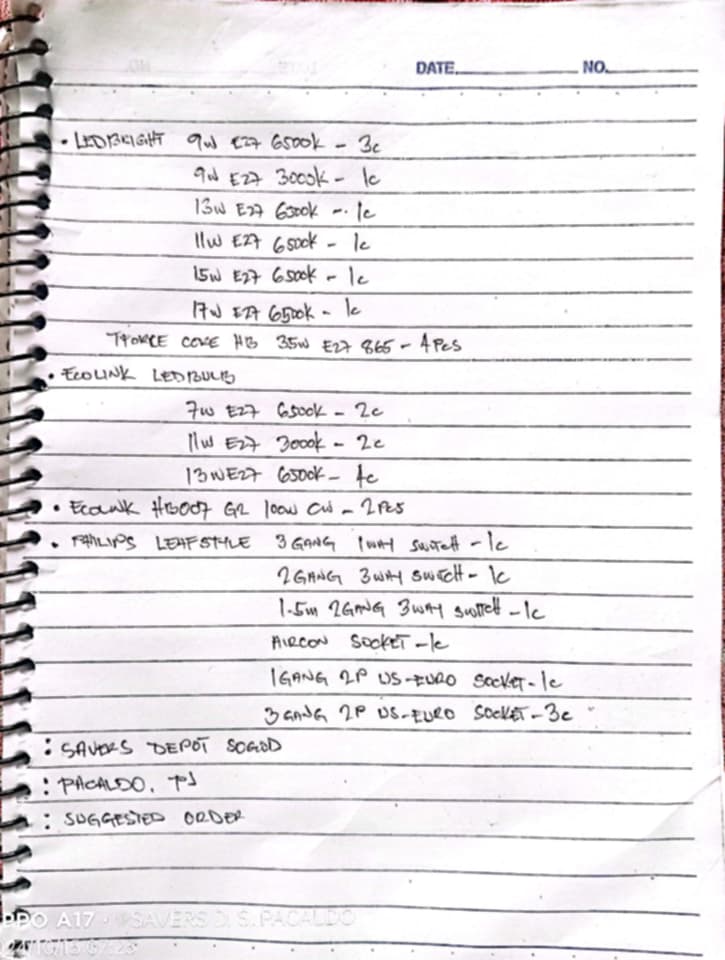 DATE. NO.
• LEDBRIGHT 9W E27 6500K - 3c
9W E27 3000K - 1c
13W E27 6500K - 1c
11W E27 6500K - 1c
15W E27 6500K - 1c
17W E27 6500K - 1c
TFORCE CORE HB 35W E27 865 - 4PCS
• ECOLINK LEDBULB
7W E27 6500K - 2c
11W E27 3000K - 2c
13W E27 6500K - 4c
• ECOLINK HB007 G2 100W CW - 2PCS
• PHILIPS LEAFSTYLE 3GANG 1WAY SWITCH - 1c
2GANG 3WAY SWITCH - 1c
1.5m 2GANG 3WAY SWITCH - 1c
AIRCON SOCKET - 1c
1GANG 2P US-EURO SOCKET - 1c
3GANG 2P US-EURO SOCKET - 3c
: SAVERS DEPOT SOGOD
: PACALDO,
: SUGGESTED ORDER
PPO A17 • ©SAVERS D. S. PACALDO